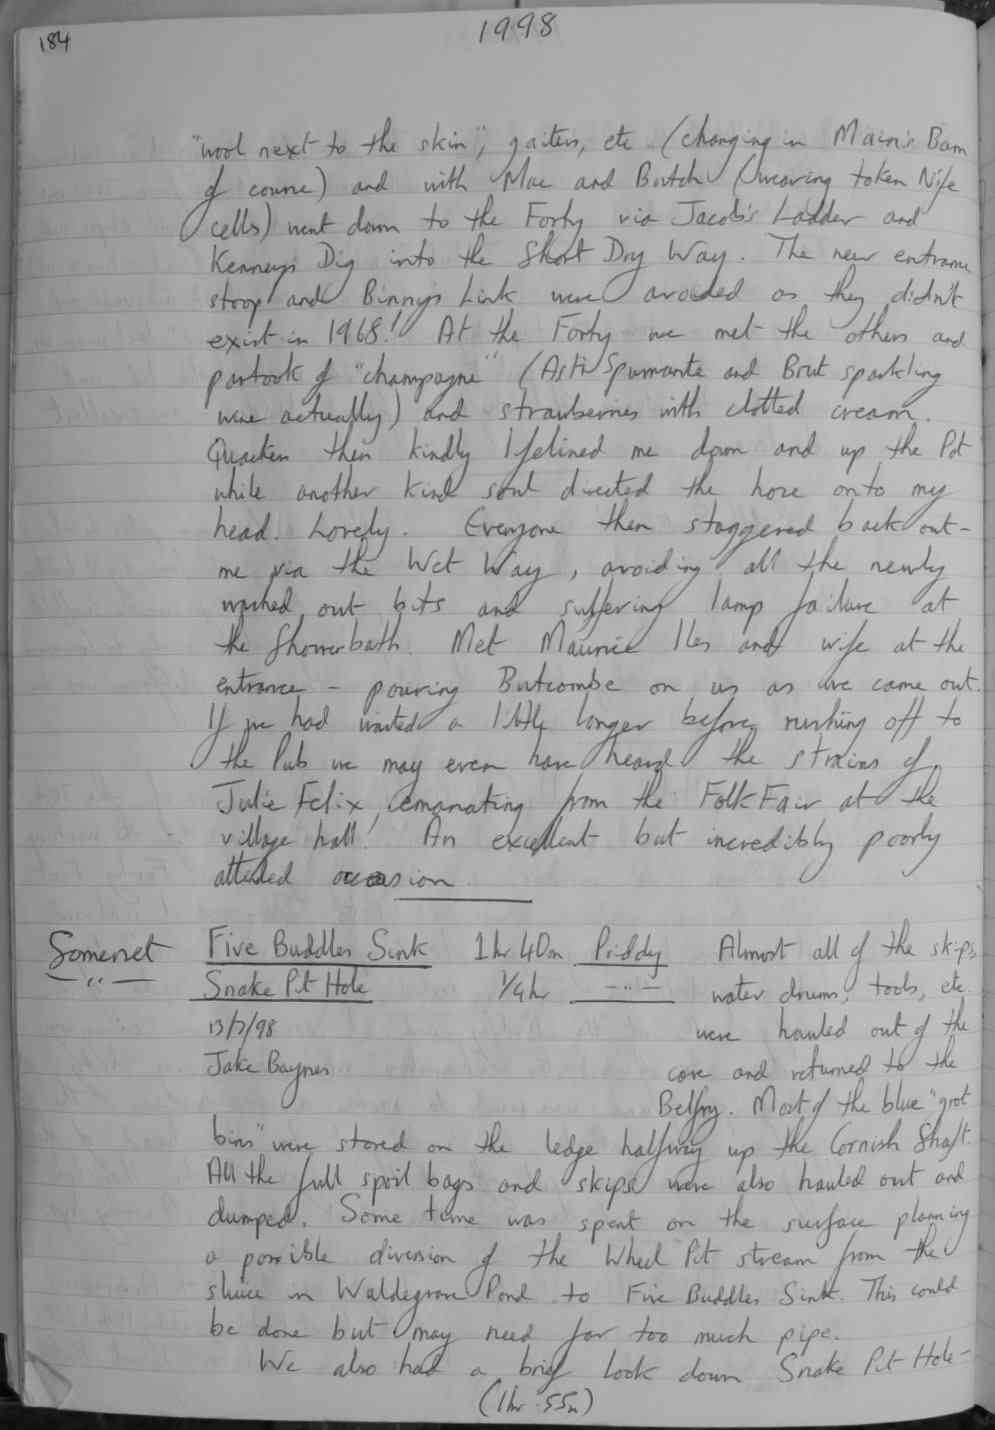 184
1998
"wool next to the skin", gaiters, etc (changing in Main's Barn
of course) and with Mac and Butch (wearing token Nife
cells) went down to the Forty via Jacob's Ladder and
Kenneys Dig into the Short Dry Way. The new entrance
stoop and Binnys Link were avoided as they didn't
exist in 1968! At the Forty we met the others and
partook of "champagne" (Asti Spumante and Brut sparkling
wine actually) and strawberries with clotted cream.
Quacken then kindly lifelined me down and up the Pot
while another kind soul directed the hose onto my
head. Lovely. Everyone then staggered back out -
me via the Wet Way, avoiding all the newly
washed out bits and suffering lamp failure at
the Showerbath. Met Maurice Iles and wife at the
entrance - pouring Butcombe on us as we came out.
If we had waited a little longer before rushing off to
the Pub we may even have heard the strains of
Julie Felix, emanating from the Folk Fair at the
village hall! An excellent but incredibly poorly
attended occasion.
Somerset Five Buddles Sink 1hr 40m Priddy Almost all of the skips,
— " — Snake Pit Hole ¼hr — " — water drums, tools, etc
13/7/98 were hauled out of the
Jake Baynes cave and returned to the
Belfry. Most of the blue "grot
bins" were stored on the ledge halfway up the Cornish Shaft.
All the full spoil bags and skips were also hauled out and
dumped. Some time was spent on the surface planning
a possible diversion of the Wheel Pit stream from the
sluice in Waldegrave Pond to Five Buddles Sink. This could
be done but may need far too much pipe.
We also had a brief look down Snake Pit Hole -
(1hr 55m)